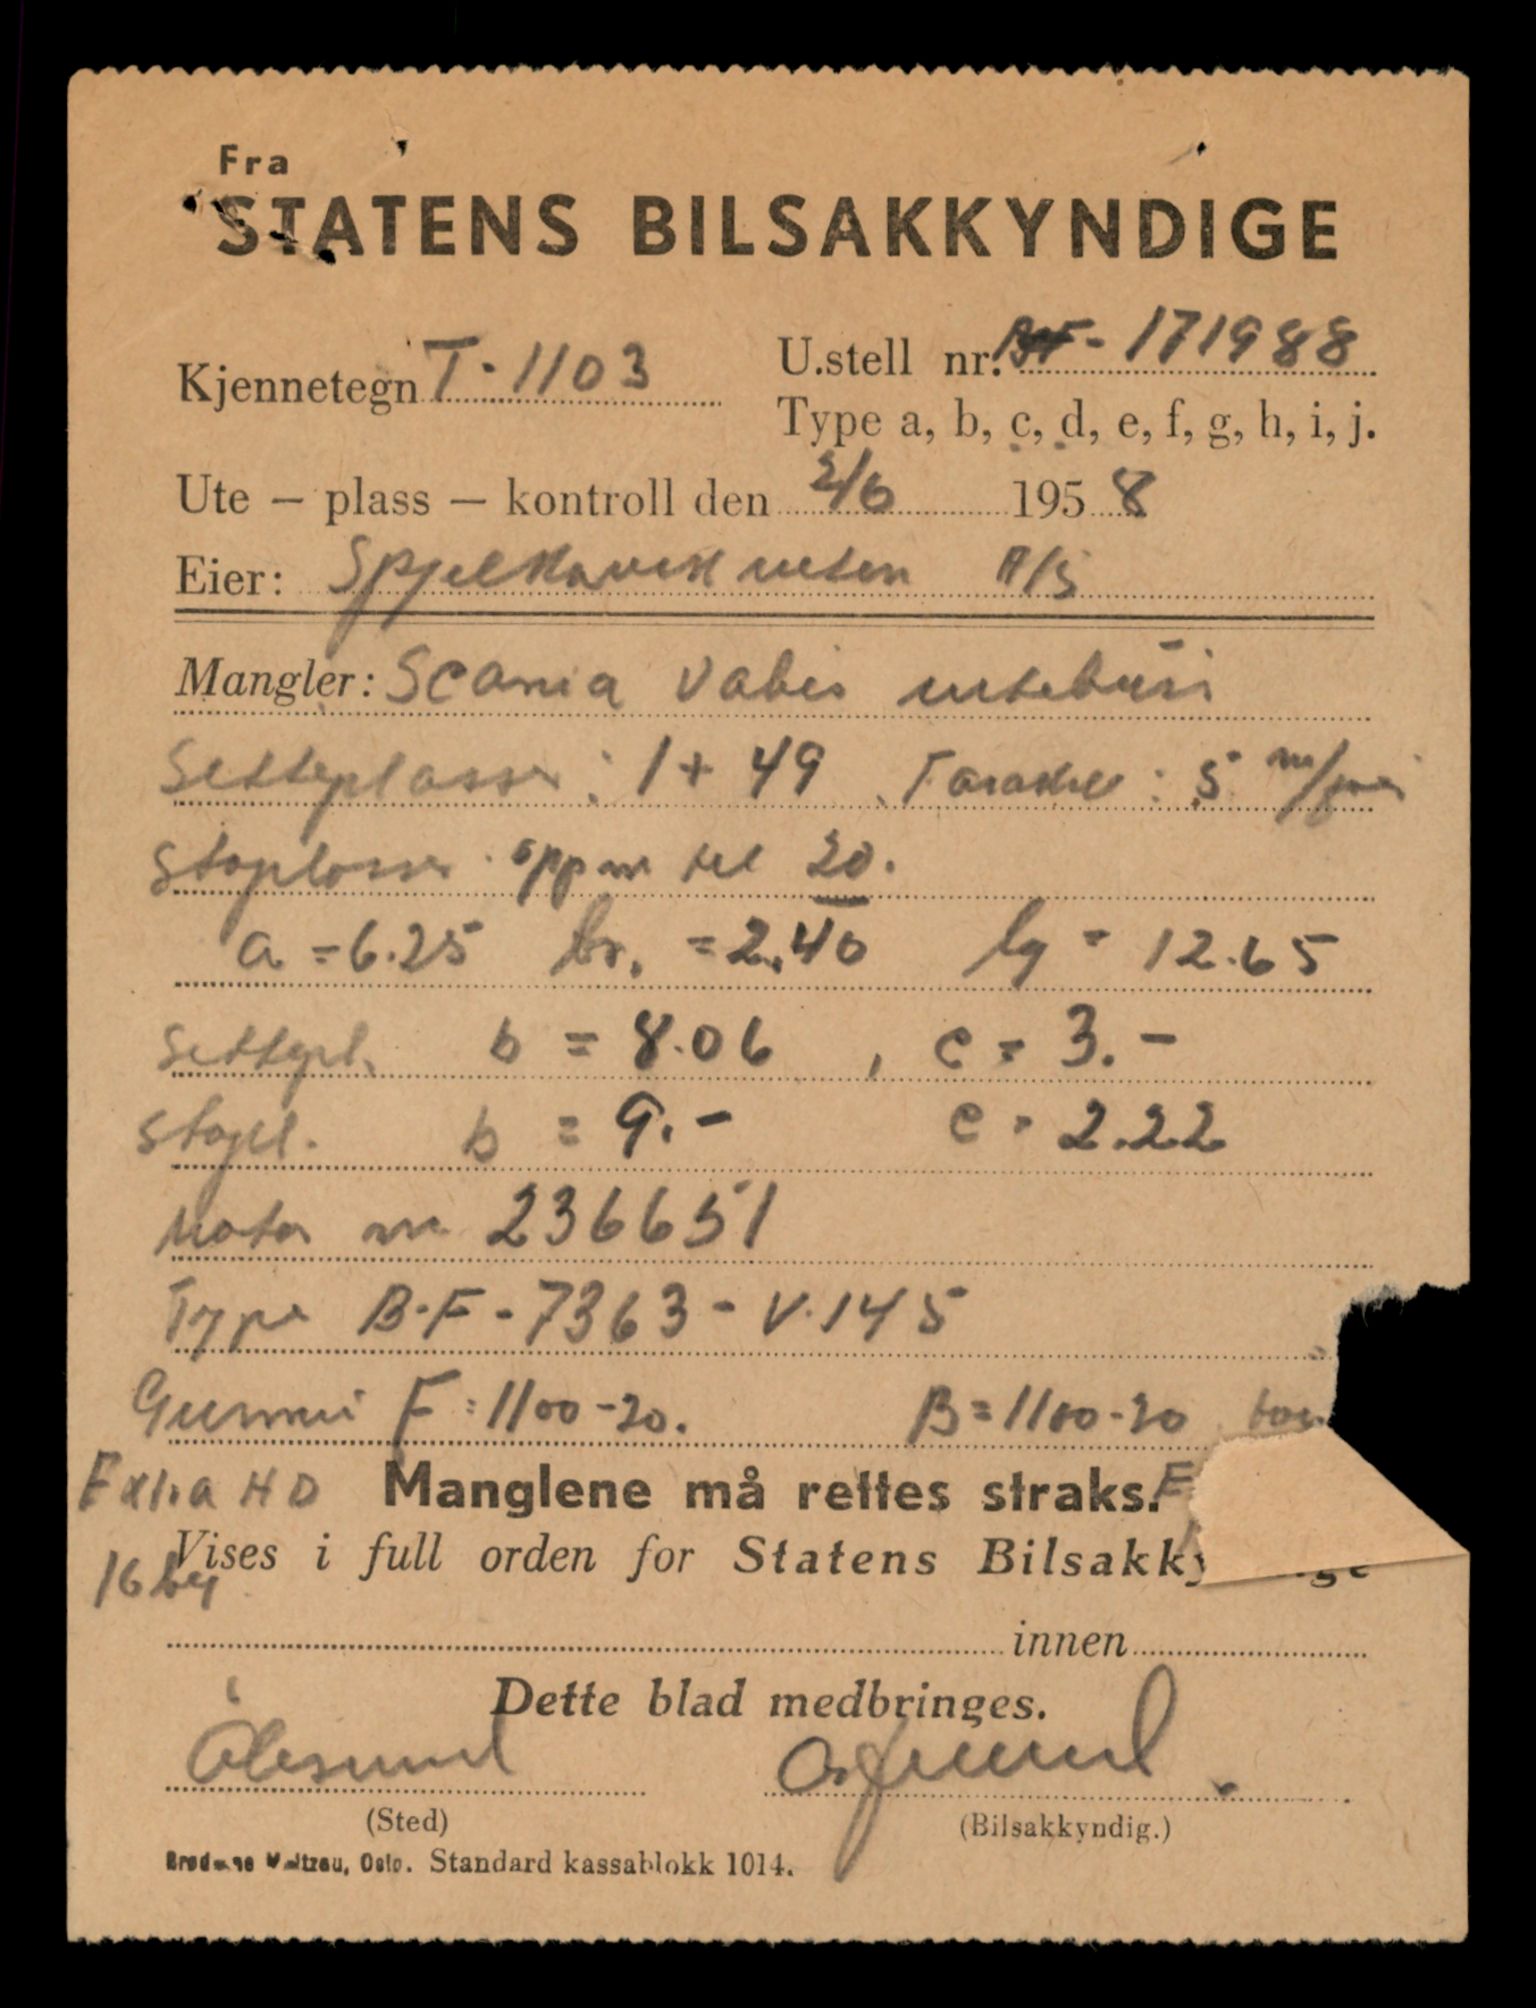 Fra
STATENS BILSAKKYNDIGE
Kjennetegn T-1103
U.stell nr. BF-171988
Type a, b, c, d, e, f, g, h, i, j.
Ute – plass – kontroll den 2/6 1958
Eier: Spjelkavik ruten A/S
Mangler: Scania Vabis rutebuss
Sitteplasser: 1+49
Ståplasser oppm til 20.
a = 6.25 br. = 2.40 lg = 12.65
Sittepl. b = 8.06, c = 3.-
Ståpl. b = 9.- c = 2.22
Motor nr 236651
Type B.F-7363-V.145
Gummi F = 1100-20. B = 1100-20
Extra HD Manglene må rettes straks.
16 lag
Vises i full orden for Statens Bilsakky
innen
Dette blad medbringes.
Ålesund
(Sted) (Bilsakkyndig.)
Brødrene Maltzau, Oslo. Standard kassablokk 1014.